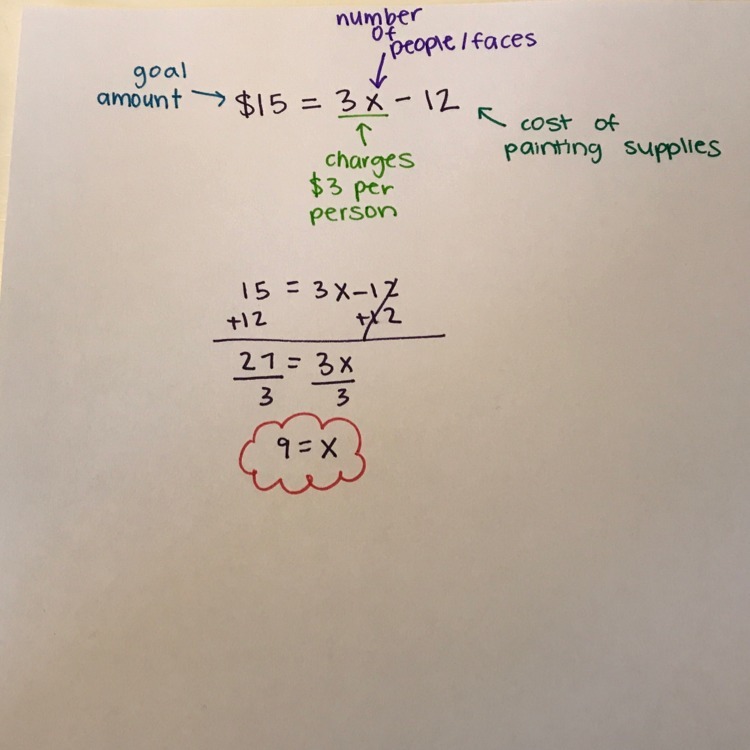 number
of
people/faces
goal
amount → $15 = 3x - 12
cost of
painting supplies
charges
$3 per
person
15 = 3x-12
+12 +12
27 = 3x
3 3
9 = x